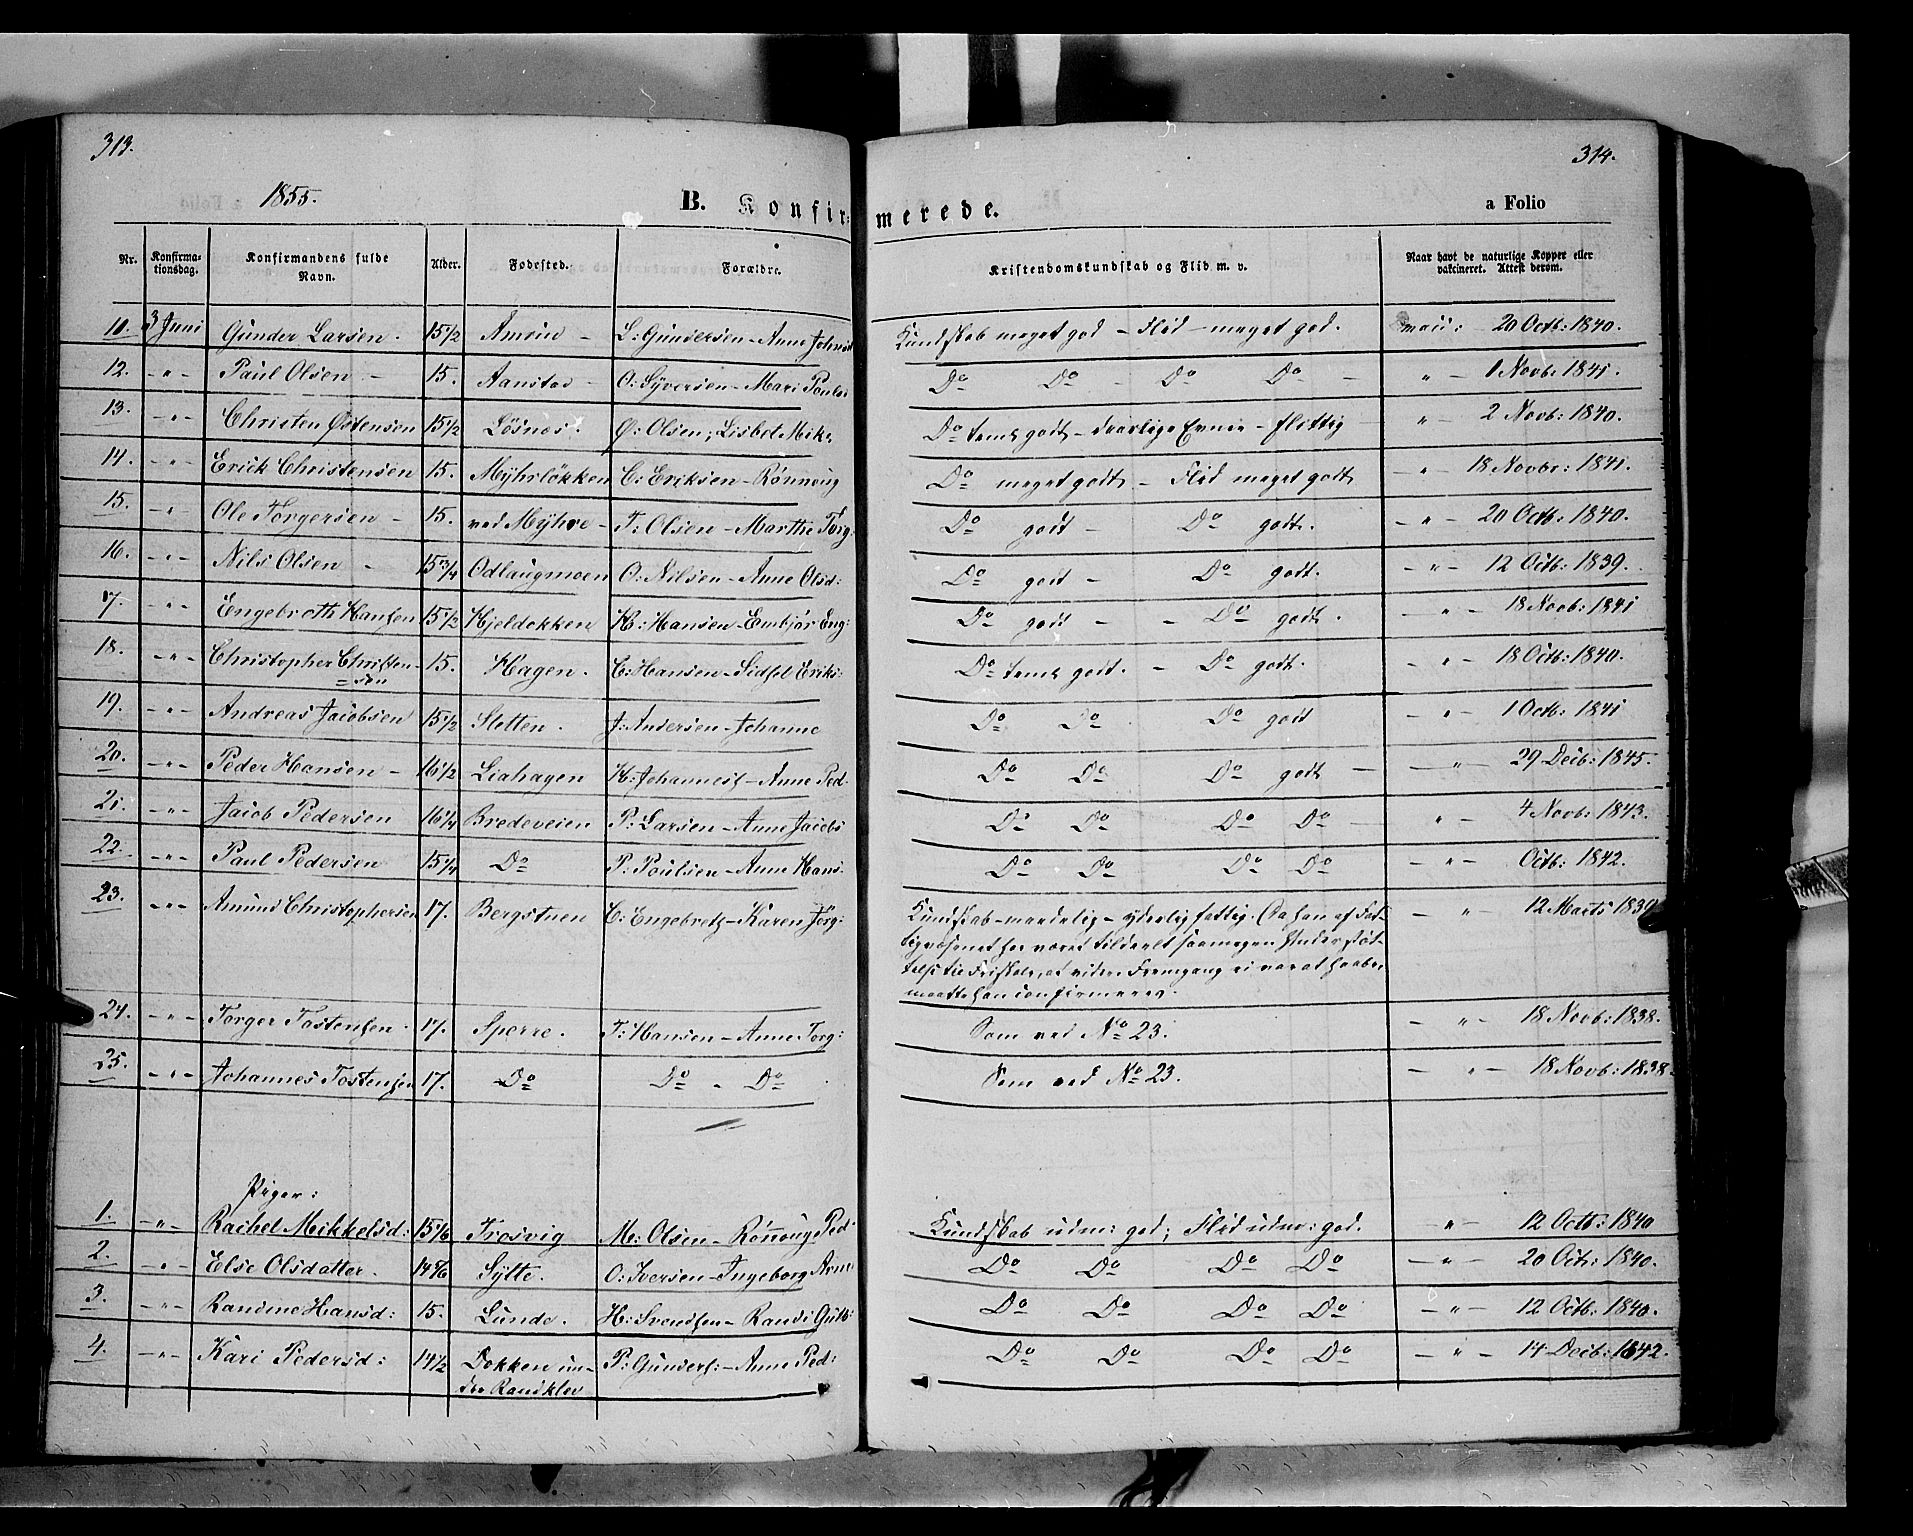 313.
314.
1855.
B. Konfir-
merede.
a Folio
Nr.
Konfirma-
tionsdag.
Konfirmandens fulde
Navn.
Alder.
Fødested.
Forældre.
Kristendomskundskab og Flid m. v.
Naar havt de naturlige Kopper eller
vakcineret. Attest derom.
11. 3 Juni Gunder Larsen. 15 1/2 Amrud - L: Gundersen - Anne Johnsd Kundskab meget god - Flid - meget god. 20 Octb: 1840.
12. - " - Paul Olsen - 15. Aanstad - O: Syversen - Mari Pouls Do Do - Do Do - " - 1 Novb: 1841.
13. - " - Christen Østensen 15 1/2 Løsnes. Ø: Olsen; Lisbet Mik, Do temel godt - daarlige Evner - flittig " - 2 Novb: 1840.
14. - " - Erick Christensen 15. Myhrløkken C: Eriksen - Rønnoug Do meget godt - Flid meget godt - " - 18 Novbr: 1841.
15. - " - Ole Torgersen - 15. ved Myhre - T: Olsen - Marthe Torg: Do godt - Do godt. - " - 20 Octb: 1840.
16. - " - Nils Olsen - 15 3/4 Odlaugmoen O: Nilsen - Anne Olsd: Do godt - Do godt. - " - 12 Octb: 1839.
17. - " - Engebreth Hansen 15 1/2 Kjeldokken H: Hansen - Embjør Eng: Do godt - - Do godt. - " - 18 Novb: 1841
18. - " - Christopher Christen-
=sen 15. Hagen. C: Hansen - Sidsel Eriks: Do temel godt. - Do godt. - " - 18 Octb: 1840.
19. - " - Andreas Jacobsen 15 1/2 Sletten. J: Andersen - Johanne Do Do Do godt - " - 1 Octb: 1841
20. - " - Peder Hansen - 16 1/2 Liahagen H: Johannesf - Anne Ped- Do Do Do godt - - " - 29 Decb: 1845.
21. - " - Jacob Pedersen 16 1/4 Bredeveien P: Larsen - Anne Jacobs Do Do Do Do - " - 4 Novb: 1843.
22. - " - Paul Pedersen 15 1/4 Do P: Poulsen - Anne Hans. Do Do Do Do - " - Octb: 1842.
23. - " - Amund Christophersen 17. Bergstuen C: Engebretf - Karen Jørg: Kundskab - maadelig - yderlig fattig. Da han af Fat-
tigvæsenet har været tildeelt saamegen Understøt-
telse til Friskole, at videre Fremgang ei var at haabe,
maatte han confirmeres. - " - 12 Marts 1839
24. - " - Torger Tostensen. 17. Sperre. T: Hansen - Anne Torg: Som ved No 23. - " - 18 Novb: 1838.
25. - " - Johannes Tostensen 17. Do Do - Do Som ved No 23. - " - 18 Novb: 1838.
Piger:
1. - " - Rachel Mikkelsd: 15 1/6 Trosvig M: Olsen - Rønnoug Ped: Kundskab udm: god; Flid udm: god. - " - 12 Octb: 1840
2. " Else Olsdatter. 14 5/6 Sÿtte. O: Iversen - Ingeborg Arne Do Do Do Do - " - 20 Octb: 1840.
3. - " - Randine Hansd: 15. Lunde. H: Svendsen - Randi Gulb: Do Do Do Do - " - 12 Octb: 1840.
4. - " - Kari Pedersd: 14 1/2 Dokken un-
der Randklev P: Gunders: - Anne Ped: Do Do Do Do - " - 14 Decb: 1842.